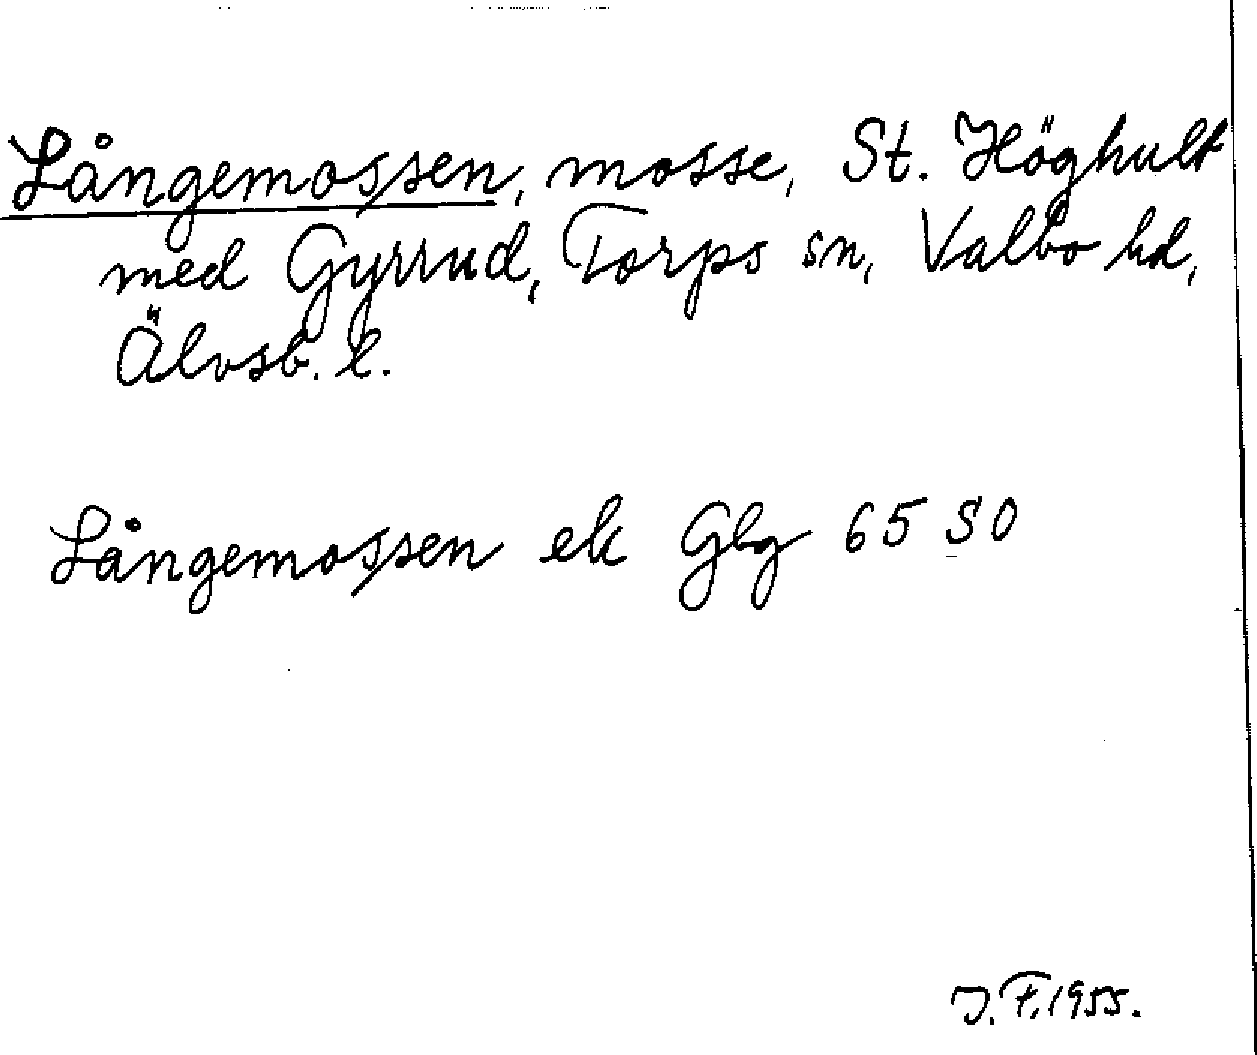 Långemossen, mosse, St. Höghult
med Gyrrud, Torps sn, Valbo hd,
Älvsb. l.
Långemossen ek Gbg 65 SO
J. F. 1955.